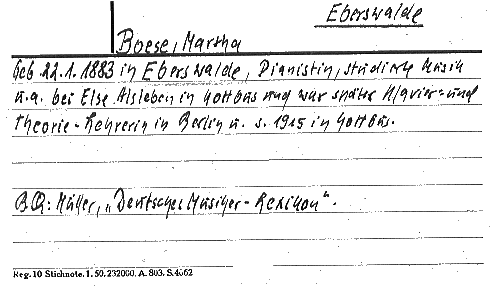 Eberswalde
Boese, Martha
Geb 22.1.1883 in Eberswalde, Pianistin, studierte Musik
u.a. bei Else Alsleben in Cottbus und war später Klavier- und
Theorie-Lehrerin in Berlin u. s. 1915 in Cottbus.
BQ: Müller, "Deutsches Musiker-Lexikon".
Reg. 10 Stichnote. 1. 50. 232000. A. 803. S. 4662